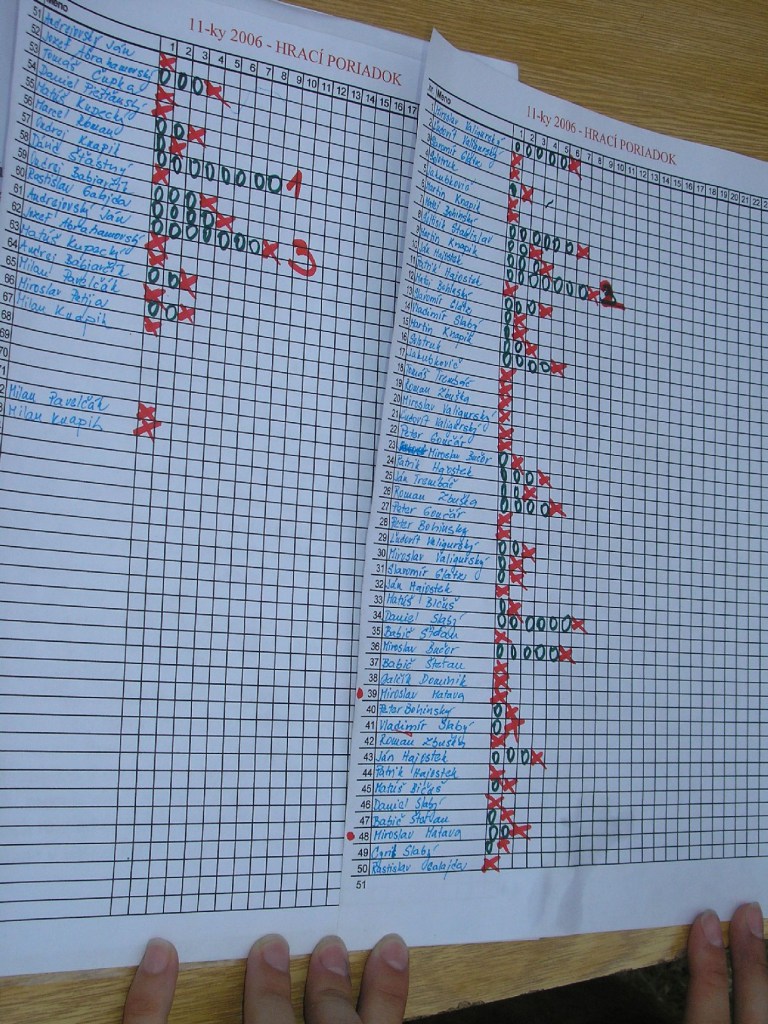 11-ky 2006 - HRACÍ PORIADOK
Meno
1 2 3 4 5 6 7 8 9 10 11 12 13 14 15 16 17
51 Andrejovský Ján
52 Jozef Abrahamovský
53 Tomáš Čupka
54 Daniel
55 Matúš Kupecký
56 Marcel Roman
57 Ondrej Knapik
58 David Šťastný
59 Andrej Babjarčik
60 Rastislav Gabajda
61 Andrejovský Ján
62 Jozef Abrahamovský
63 Matúš Kupecký
64 Andrej Babjarčik
65 Milan Pavelčák
66 Miroslav
67 Milan Knapik
68
69
70
71
Milan Pavelčák
Milan Knapik
1
3
11-ky 2006 - HRACÍ PORIADOK
Meno
1 2 3 4 5 6 7 8 9 10 11 12 13 14 15 16 17 18 19 20 21 22
1 Miroslav Valigurský
2 Ľudovít Valigurský
3 Slavomír Glatz
4 Skitruk
5 Jakubkovič
6 Martin Knapik
7 Matej Bohinský
8 Stanislav
9 Martin Knapik
10 Ján Hajostek
11 Patrik Hajostek
12 Matej Bohinský
13 Slavomír Glatz
14 Vladimír Slabý
15 Martin Knapik
16 Skitruk
17 Jakubkovič
18 Tomáš Trembáč
19 Roman Zbuška
20 Miroslav Valigurský
21 Ľudovít Valigurský
22 Peter Gončár
23 Miroslav Bučor
24 Patrik Hajostek
25 Ján Trembáč
26 Roman Zbuška
27 Peter Gončár
28 Peter Bohinský
29 Ľudovít Valigurský
30 Miroslav Valigurský
31 Slavomír Glatz
32 Ján Hajostek
33 Matúš Bičuš
34 Daniel Slabý
35 Babič Štefan
36 Miroslav Bučor
37 Babič Štefan
38 Galčík Dominik
39 Miroslav Hatava
40 Peter Bohinský
41 Vladimír Slabý
42 Roman Zbuška
43 Ján Hajostek
44 Patrik Hajostek
45 Matúš Bičuš
46 Daniel Slabý
47 Babič Štefan
48 Miroslav Hatava
49 Cyril Slabý
50 Rastislav
51